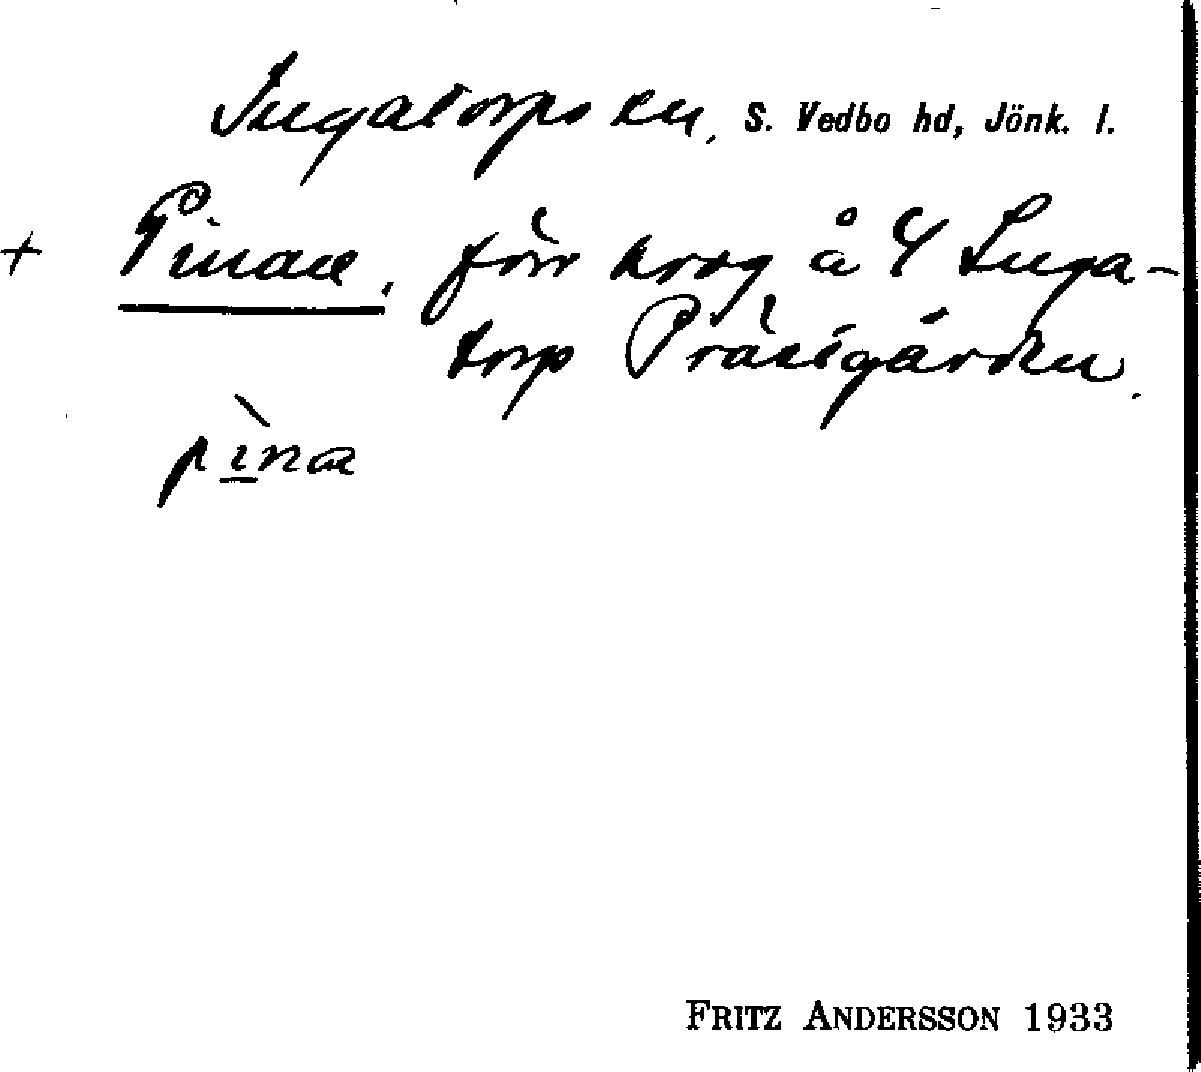 Ingatorps sn, S. Vedbo hd, Jönk. l.
+ Pinan, förr krog å 4 Inga-
torp Prästgården.
pìna
FRITZ ANDERSSON 1933